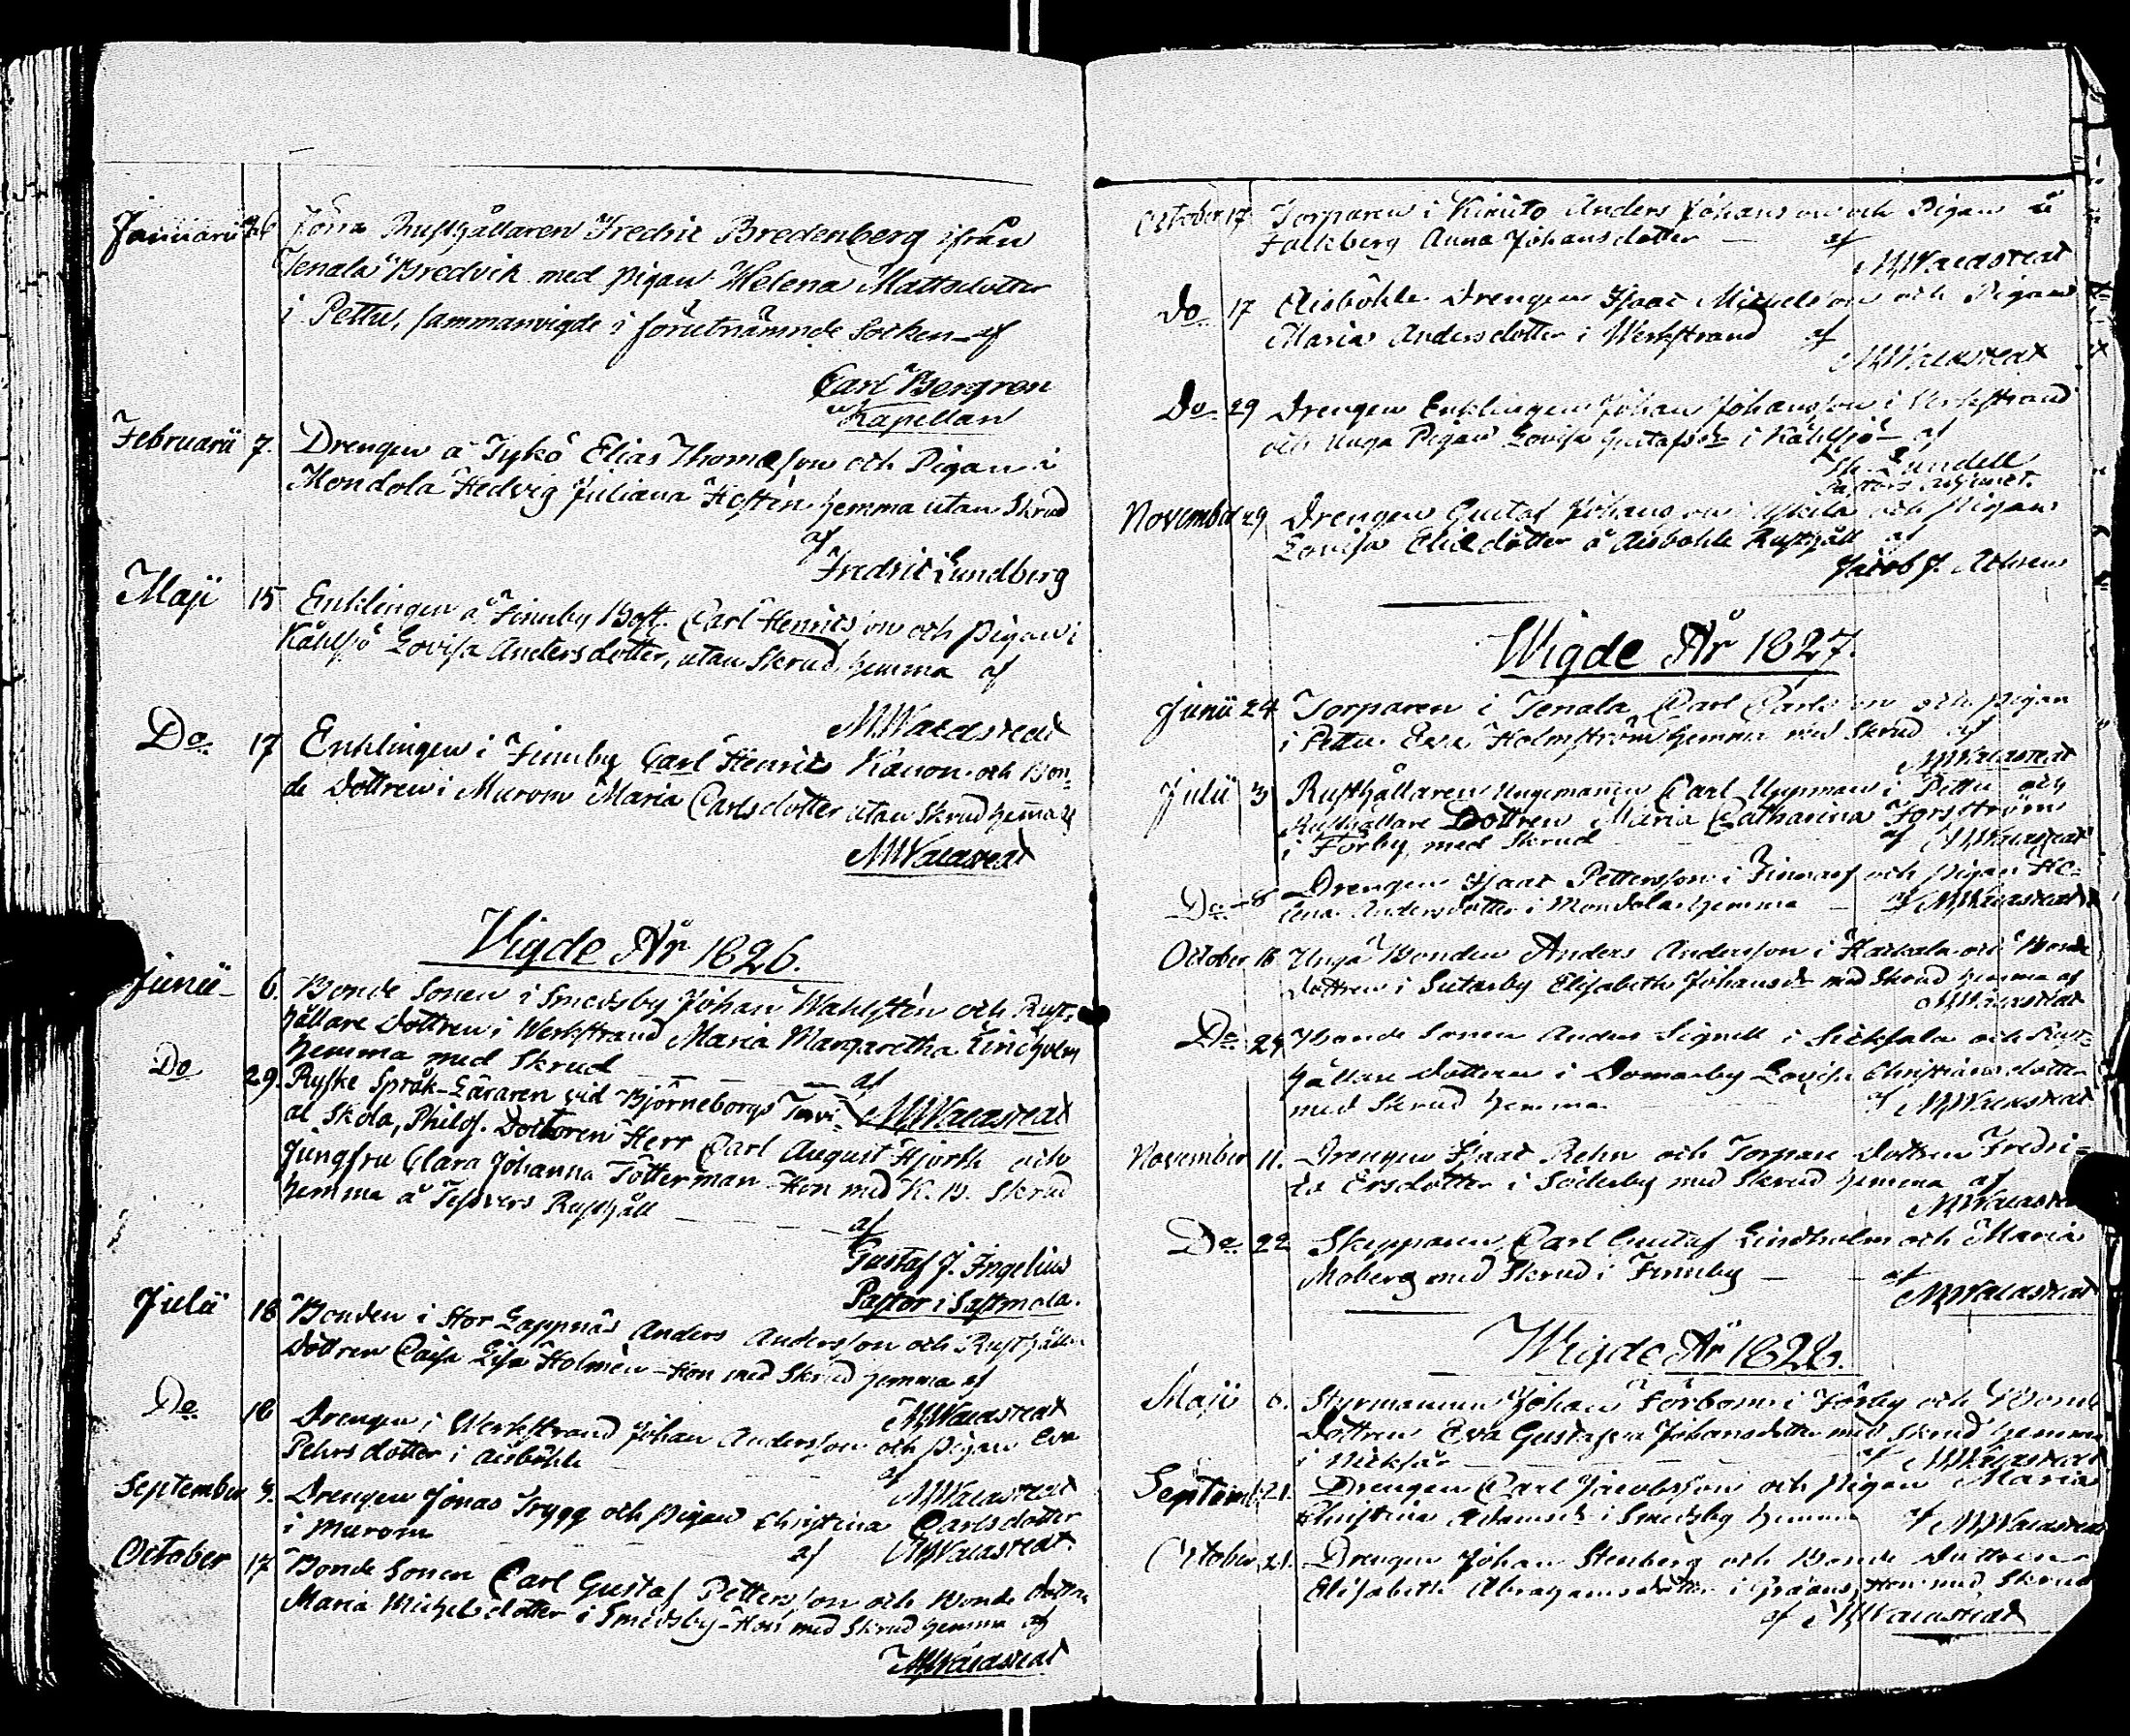 Januarii 26 Förra Rusthållaren Fredric Bredenberg ifrån
Tenala Bredvik med pigan Helena Mattsdotter
i Pettu, sammanvigde i förutnämnde Socken af
Carl Bergren
Kapellan
Februarii 7. Drengen å Tykö Elias Thomasson och Pigan i
Mondola Hedvig Juliana hemma utan Skrud
af
Fredric Lundberg
Maji 15 Enklingen å Finnby Bost. Carl Henricsson och pigan i
Kåhlsjö Lovisa Andersdotter, utan Skrud, hemma af
MWacastedt
Do 17 Enklingen i Finnby Carl Henric och Bon-
de dottren i Murom Maria Carlsdotter utan Skrud hemma af
MWacastedt
Vigde År 1826.
Junii 6. Bonde Sonen i Smedsby Johan Wahlstén och Rust-
hållare Dottren i Werkstrand Maria Margaretha Lindholm
hemma med Skrud af
MWacastedt
Do 29. Ryske Språk-Läraren vid Björneborgs Trivi-
al Skola, Philos. Doctoren Herr Carl August Hjorth och
Jungfru Clara Johanna Tötterman Hon med K. B. Skrud
hemma å Rusthåll af
Gustaf J. Ingelius
Pastor i Sastmola.
Julii 18 Bonden i Stor Lappnäs Anders Andersson och Rusthålla
dottren Caisa Lisa Holmén Hon med Skrud hemma af
MWacastedt
Do 18 Drengen i Werkstrand Johan Andersson och pigan Eva
Pehrsdotter i Aisböhle af
MWacastedt
September Drengen Jonas Trygg och pigan Christina Carlsdotter
i Murom af MWacastedt.
October 17 Bonde Sonen Carl Gustaf Pettersson och Bonde dottren
Maria Michelsdotter i Smedsby Hon med Skrud hemma af
MWacastedt
October 17. Torparen i Kimito Anders Johansson och Pigan å
Falkberg Anna Johansdotter af
MWacastedt
Do 17 Aisböhle Drengen Isaac Michelsson och Pigan
Maria Andersdotter i Werkstrand af
MWacastedt
Do 29 Drengen Enklingen Johan Johansson i Werkstrand
och unga Pigan Lovisa Gustafsdr i Kåhlsjö af
Lundell
Pastors Adjunct.
November 29 Drengen Gustaf Johansson i och pigan
Lovisa Eliædotter å Aisböhle Rusthåll af
Jacob J.
Wigde År 1827.
Junii 24 Torparen i Tenala Carl Carlsson och pigan
i Pettu Eva Holmström hemma med Skrud af
MWacastedt
Julii 3 Rusthållaren Ungemannen Carl Uppman i Pettu och
Rusthållare Dottren Maria Catharina Forsström
i Förby med Skrud af MWacastedt
Do 8 Drengen Isaac Pettersson i Finnas och pigan He-
lena Andersdotter i Mondola hemma af MWacastedt
October 18 Unga Bonden Anders Andersson i och Bonde
dottren i Sutarby Elisabeth Johansdr med Skrud hemma af
MWacastedt
Do 24 Bonde Sonen Anders Signell i och Rust-
hållare dotteren i Domarby Lovisa Christiansdotter
med Skrud hemma af MWacastedt
November 11. Drengen Isaac Rehn och Torpare dottren Fredri-
ca Ersdotter i Söderby med Skrud hemma af
MWacastedt
Do 22 Skepparen Carl Gustaf Lindholm och Maria
Moberg med Skrud i Finnby af
MWacastedt
Wigde År 1828.
Maji 6. Styrmannen Johan Förbom i Förby och Bonde
Dottren Eva Gustava Johansdotter med Skrud hemma
i af MWacastedt
Septemb. 21. Drengen Carl Jacobsson och Pigan Maria
Christina Adamsdr i Smedsby hemma af MWacastedt
October 21. Drengen Johan Stenberg och Bonde Dottren
Elisabeth Abrahamsdotter i Hon med Skrud
af MWacastedt